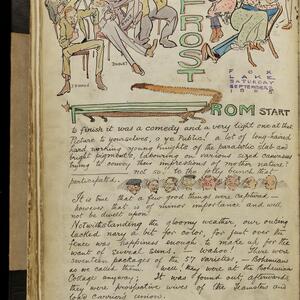 FROST
FOX
LAKE
SATURDAY
SEPTEMBER
FROM START
to finish it was a comedy and a very light one at that
Picture to yourselves, o ye Public! a lot of long-haired
hard working young Knights of the parabolic slab and
bright pigments, labouring on various sized canvases
trying to convey their impressions of mother nature!
not so! to the jolly bunch that
participated.
It is true that a few good things were captured —
however that is of minor importance and will
not be dwelt upon!
Notwithstanding the gloomy weather our outing
lacked nary a bit for color, for just over the
fence was happiness enough to make up for the
want of several suns! — Wahoo! There were
seventeen packages of the 57 varieties, — Bohemians
as we called them! Well, they were at the Bohemian
Cottage anyway! It was found out, afterwards,
they were prospective wives of the Teamsters and
carriers union.